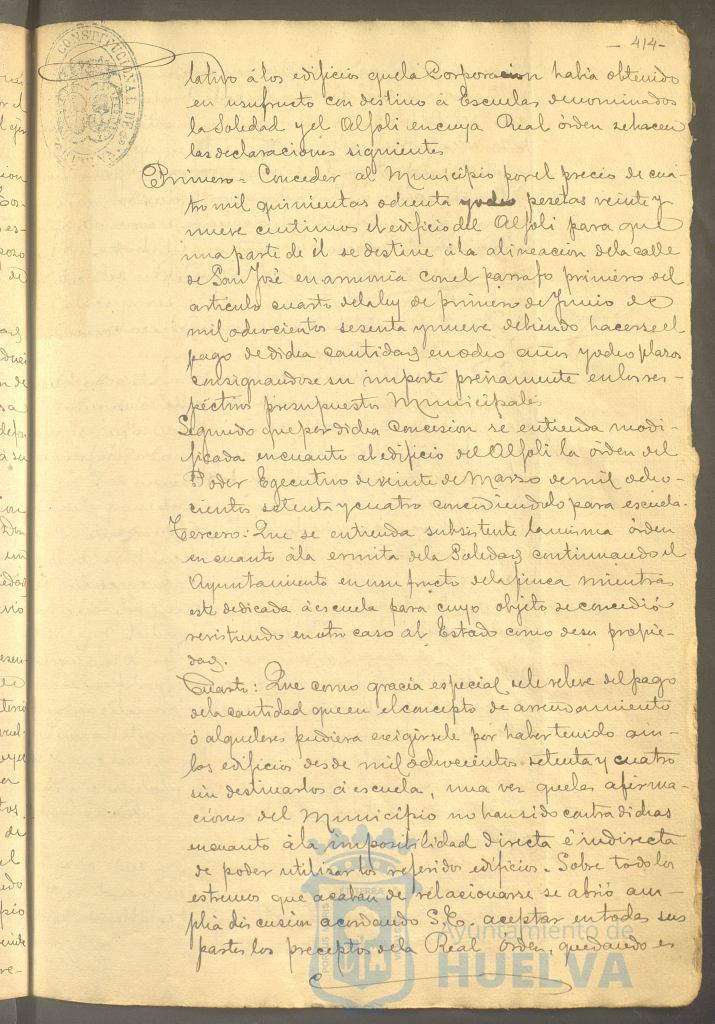 - 414-
CONSTITUCIONAL DE
lativo á los edificios que la Corporacion habia obtenido
en usufructo con destino á Escuelas denominados
la Soledad y el Alfoli en cuya Real órden se hacen
las declaraciones siguientes
Primero = Conceder al Municipio por el precio de cua-
tro mil quinientas ochenta y ocho pesetas veinte y
nueve centimos el edificio del Alfoli para que
una parte de él se destine á la alineacion de la calle
de San José en armonia con el parrafo primero del
articulo cuarto de la ley de primero de Junio de
mil ochocientos sesenta y nueve debiendo hacerse el
pago de dicha cantidad en ocho años y ocho plazos
consignandose su importe previamente en los res-
pectivos presupuestos Municipales
Segundo que por dicha concesion se entienda modi-
ficada en cuanto al edificio del Alfoli la órden del
Poder Egecutivo de veinte de Marzo de mil ocho-
cientos setenta y cuatro concendiendolo para escuela.
Tercero: Que se entienda subsistente la misma órden
en cuanto á la ermita de la Soledad continuando el
Ayuntamiento en usufructo de la finca mientras
esté dedicada á escuela para cuyo objeto se concedió
revirtiendo en otro caso al Estado como de su propie-
dad.
Cuarto: Que como gracia especial se le releve del pago
de la cantidad que en el concepto de arrendamiento
ó alquileres pudiera exigirsele por haber tenido am-
bos edificios desde mil ochocientos setenta y cuatro
sin destinarlos á escuela, una vez que las afirma-
ciones del Municipio no han sido contradichas
en cuanto á la imposibilidad directa é indirecta
de poder utilizar los referidos edificios. Sobre todo los
estremos que acaban de relacionarse se abrió am-
plia discusion acordando S.E. aceptar en todas sus
partes los preceptos de la Real órden, quedando es
Ayuntamiento de
HUELVA